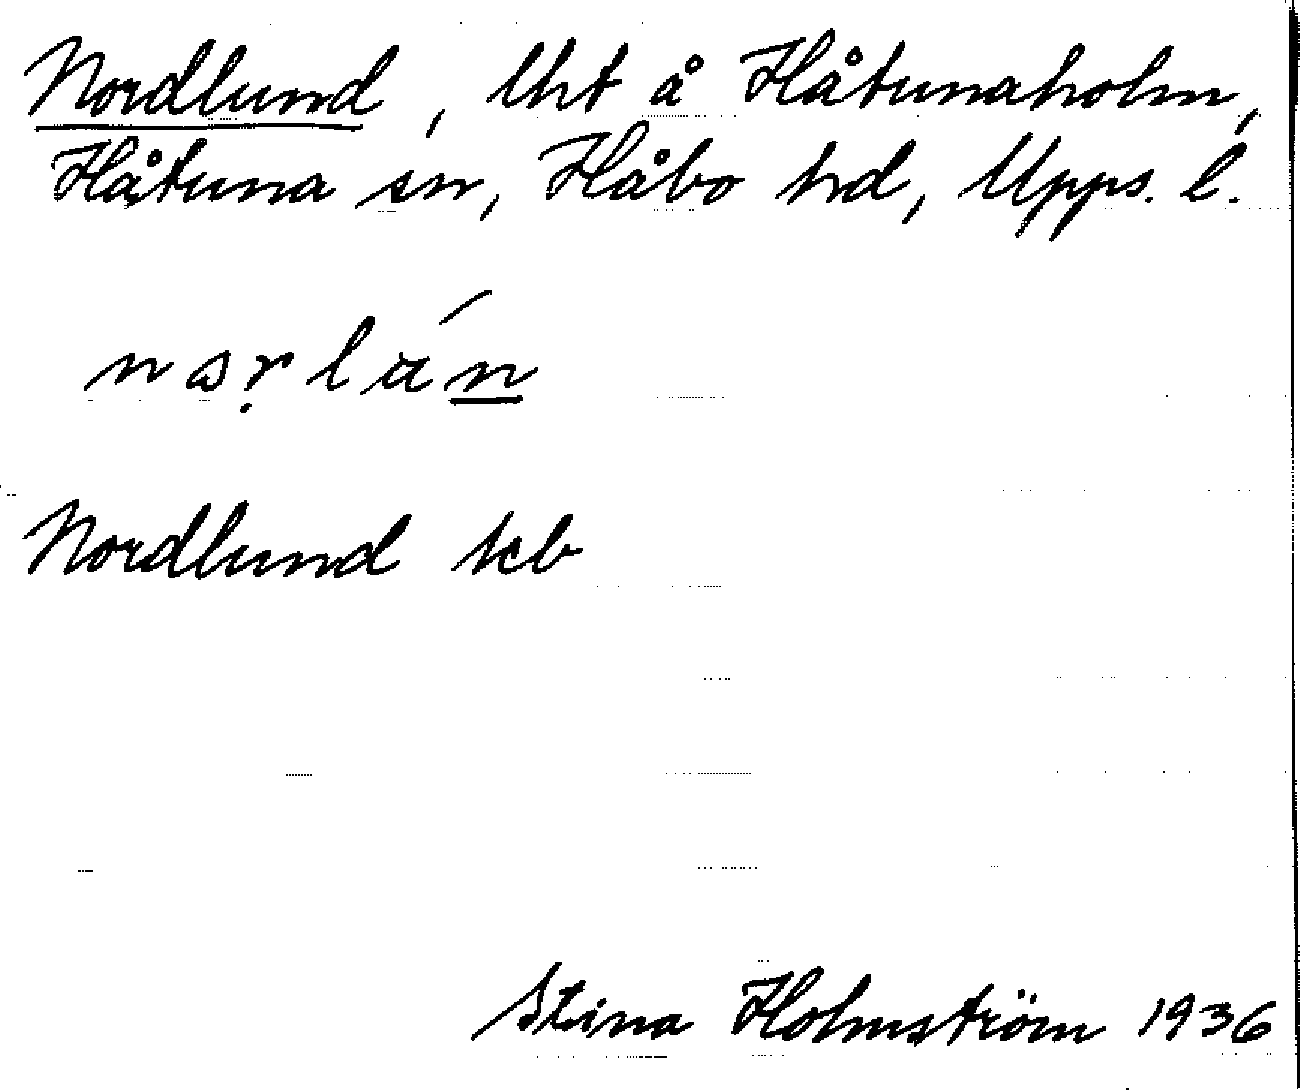 Nordlund, lht å Håtunaholm,
Håtuna sn, Håbo hd, Upps. l.
Nordlund kcb
Stina Holmström 1936